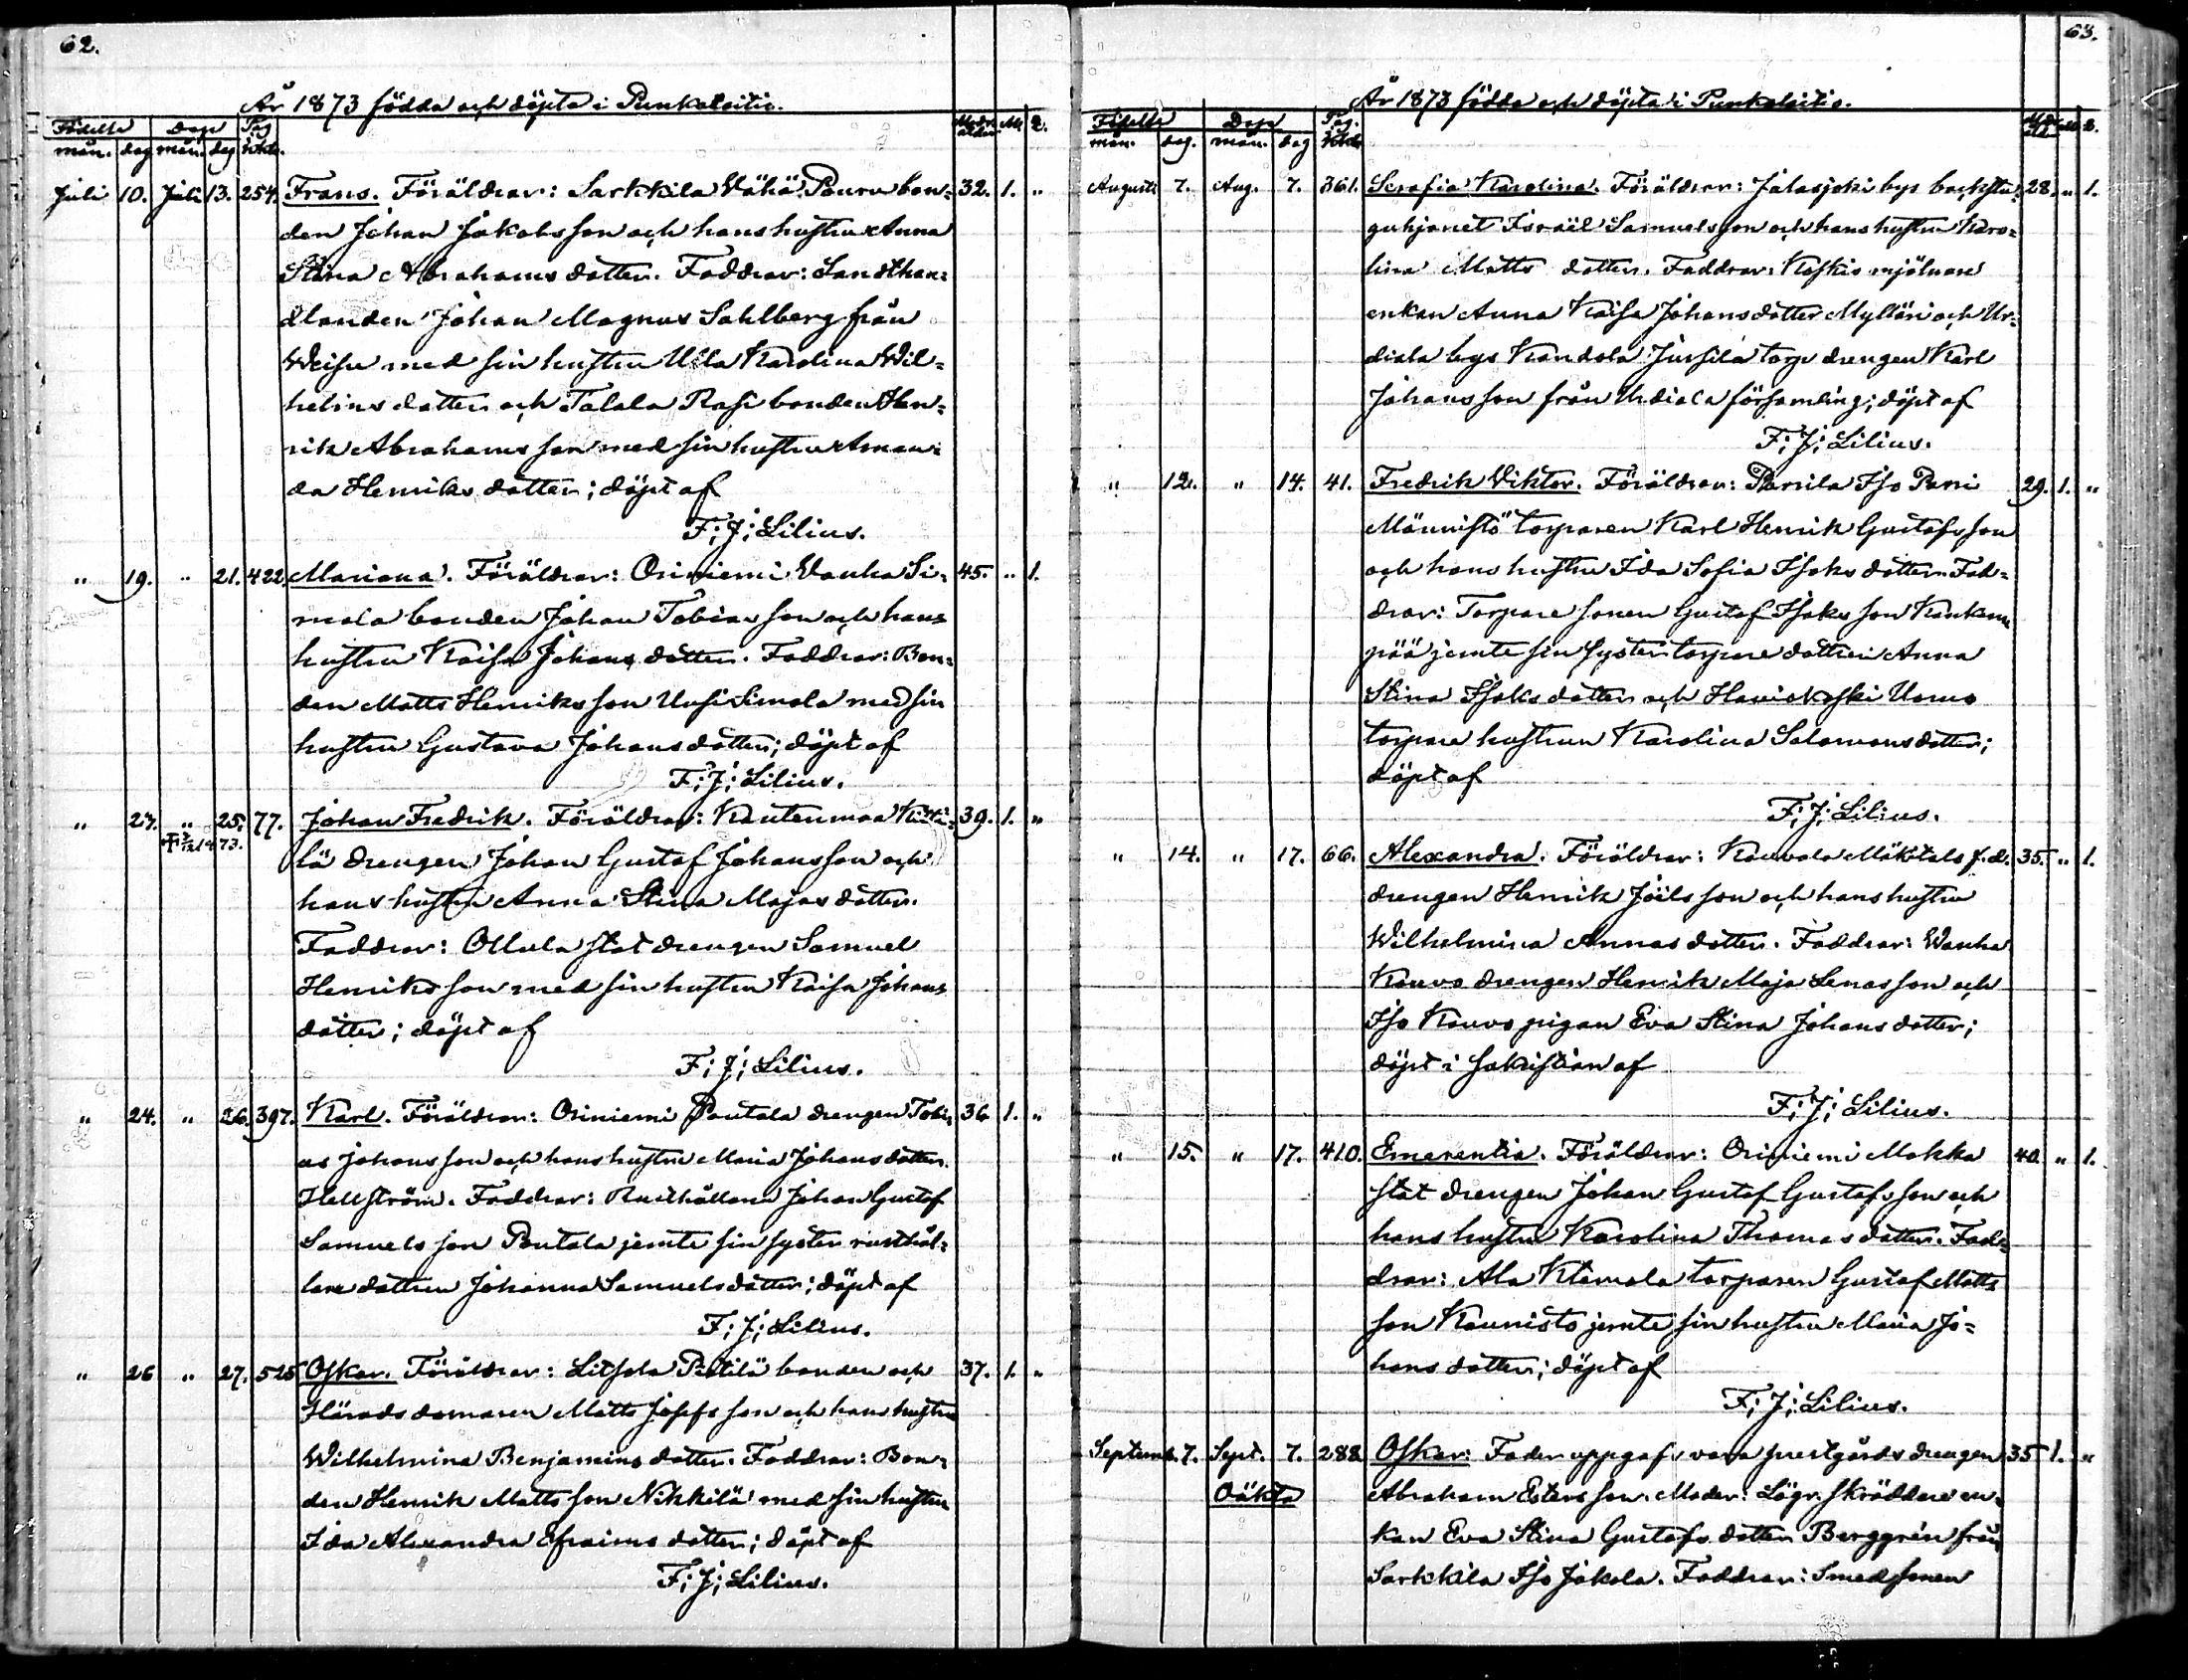 62.
År 1873 födda och döpta i Punkalaitio.
Födelse Dop Pag. Moders ålder M. Q.
mån. dag mån. dag
Juli 10. Juli 13. 254. Frans. Föräldrar: Sarkkila Wähä Pouru bon= 32. 1. "
den Johan Jakobsson och hans hustru Anna
Stina Abrahams dotter. Faddrar: Landthan=
dlanden Johan Magnus Sahlberg från
Weisu med sin hustru Ulla Karolina Wil=
helms dotter och Talala Rasi bonden Hen=
rik Abrahams son med sin hustru Aman=
da Henriks dotter; döpt af
F; J; Lilius.
" 19. " 21. 422. Mariana. Föräldrar: Oriniemi Wanha Si= 45. " 1.
mola bonden Johan Tobias son och hans
hustru Kaisa Johans dotter. Faddrar: Bon=
den Matts Henriks son Uusi Simola med sin
hustru Gustava Johans dotter; döpt af
F; J; Lilius.
" 23. " 25. 77. Johan Fredrik. Föräldrar: Kanteenmaa 39. 1. "
lä drengen Johan Gustaf Johansson och
hans hustru Anna Stina Majas dotter.
Faddrar: Ollula stat drengen Samuel
Henriks son med sin hustru Kaisa Johans
dotter; döpt af
F; J; Lilius.
" 24. " 26. 397. Karl. Föräldrar: Oriniemi Poutala drengen Tobi= 36 1. "
as Johans son och hans hustru Maria Johans dotter
Hellström. Faddrar: Rusthållaren Johan Gustaf
Samuels son Poutala jemte sin syster rusthål=
lare dottren Johanna Samuels dotter; döpt af
F; J; Lilius.
" 26 " 27. 525 Oskar. Föräldrar: Litsola Pietilä bonden och 37. 1. "
Härads domaren Matts Josefs son och hans hustru
Wilhelmina Benjamins dotter. Faddrar: Bon=
den Henrik Matts son Nikkilä med sin hustru
Ida Alexandra Efraims dotter; döpt af
F; J; Lilius.
63.
År 1873 födda och döpta i Punkalaitio.
Födelse Dop Pag. M. Q.
mån. dag. mån. dag
Augusti 7. Aug. 7. 361. Serafia Karolina. Föräldrar: Jalasjoki bys backstu= 28. " 1.
guhjonet Israël Samuels son och hans hustru Karo=
lina Matts dotter. Faddrar: Koskis mjölnare
enkan Anna Kaisa Johans dotter Mylläri och Ur=
diala bys Kandola Jussila torp drengen Karl
Johans son från Urdiala församling; döpt af
F; J; Lilius.
" 12. " 14. 41. Fredrik Viktor. Föräldrar: Parrila Iso Parri 29. 1. "
Männistö torparen Karl Henrik Gustafs son
och hans hustru Ida Sofia Isaks dotter. Fad=
drar: Torpare sonen Gustaf Isaks son Kankaan
pää jemte sin syster torpare dottren Anna
Stina Isaks dotter och Haviokoski Uomo
torpare hustrun Karolina Salomons dotter;
döpt af
F; J; Lilius.
" 14. " 17. 66. Alexandra. Föräldrar: Kouvola Mäkitalo f. d. 35. " 1.
drengen Henrik Joëls son och hans hustru
Wilhelmina Annas dotter. Faddrar: Wanha
Kouvo drengen Henrik Maja Lenas son och
Iso Kouvo pigan Eva Stina Johans dotter;
döpt i sakristian af
F; J; Lilius.
" 15. " 17. 410. Emerentia. Föräldrar: Oriniemi Mokka 40. " 1.
stat drengen Johan Gustaf Gustafs son och
hans hustru Karolina Thomas dotter. Fad=
drar: Ala Klemola torparen Gustaf Matts
son Kaunisto jemte sin hustru Maria Jo=
hans dotter; döpt af
F; J; Lilius.
Septemb. 7. Sept. 7. 288 Oskar: Fader uppgafs vara prestgårds drengen 35 1. "
Oäkta Abraham Esters son. Moder: Lögn. skräddare en=
kan Eva Stina Gustafs dotter Berggrén från
Sarkkila Iso Jakola. Faddrar: Smedsonen